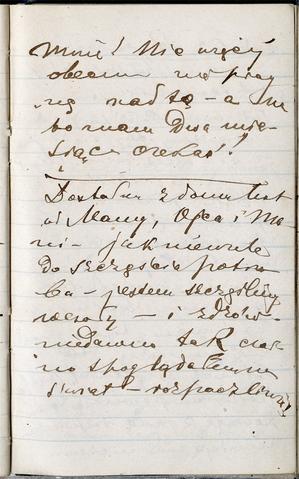 mnie! Nic więcej
obecnie nie prag
nę nad to – a tu
bo mam Dwa mie-
siące czekać!
Dostałem z domu list
od Mamy, Ojca i Ma
ni – jak niewiele
do szczęścia potrze
ba – jestem szczęśliwy
wesoły – i zdrów –
niedawno tak czar
no spoglądałem na
świat – rozpaczliwie!